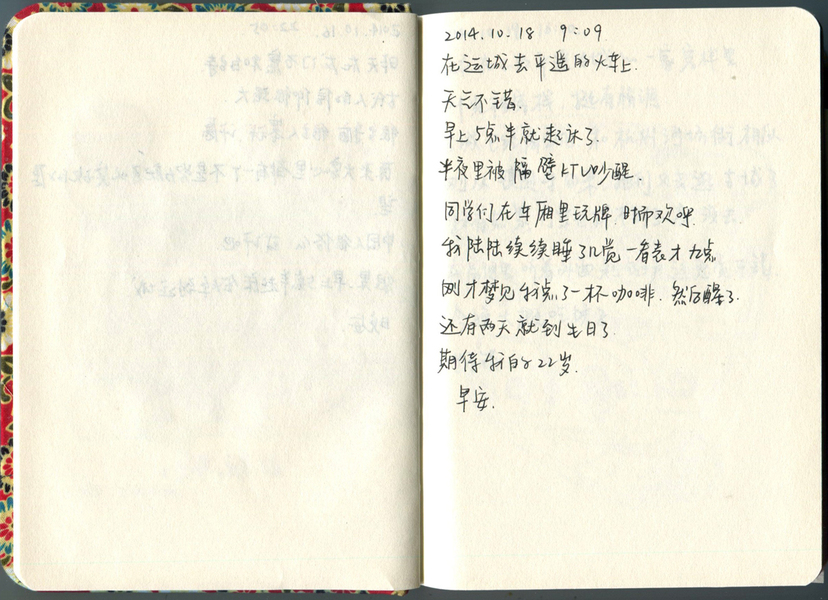 2014.10.18 9:09
在运城去平遥的火车上.
天气不错.
早上5点半就起床了.
半夜里被隔壁KTV吵醒.
同学们在车厢里玩牌.时而欢呼.
我陆陆续续睡了几觉一看表才九点
刚才梦见我点了一杯咖啡.然后醒了.
还有两天就到生日了.
期待我的22岁.
早安.